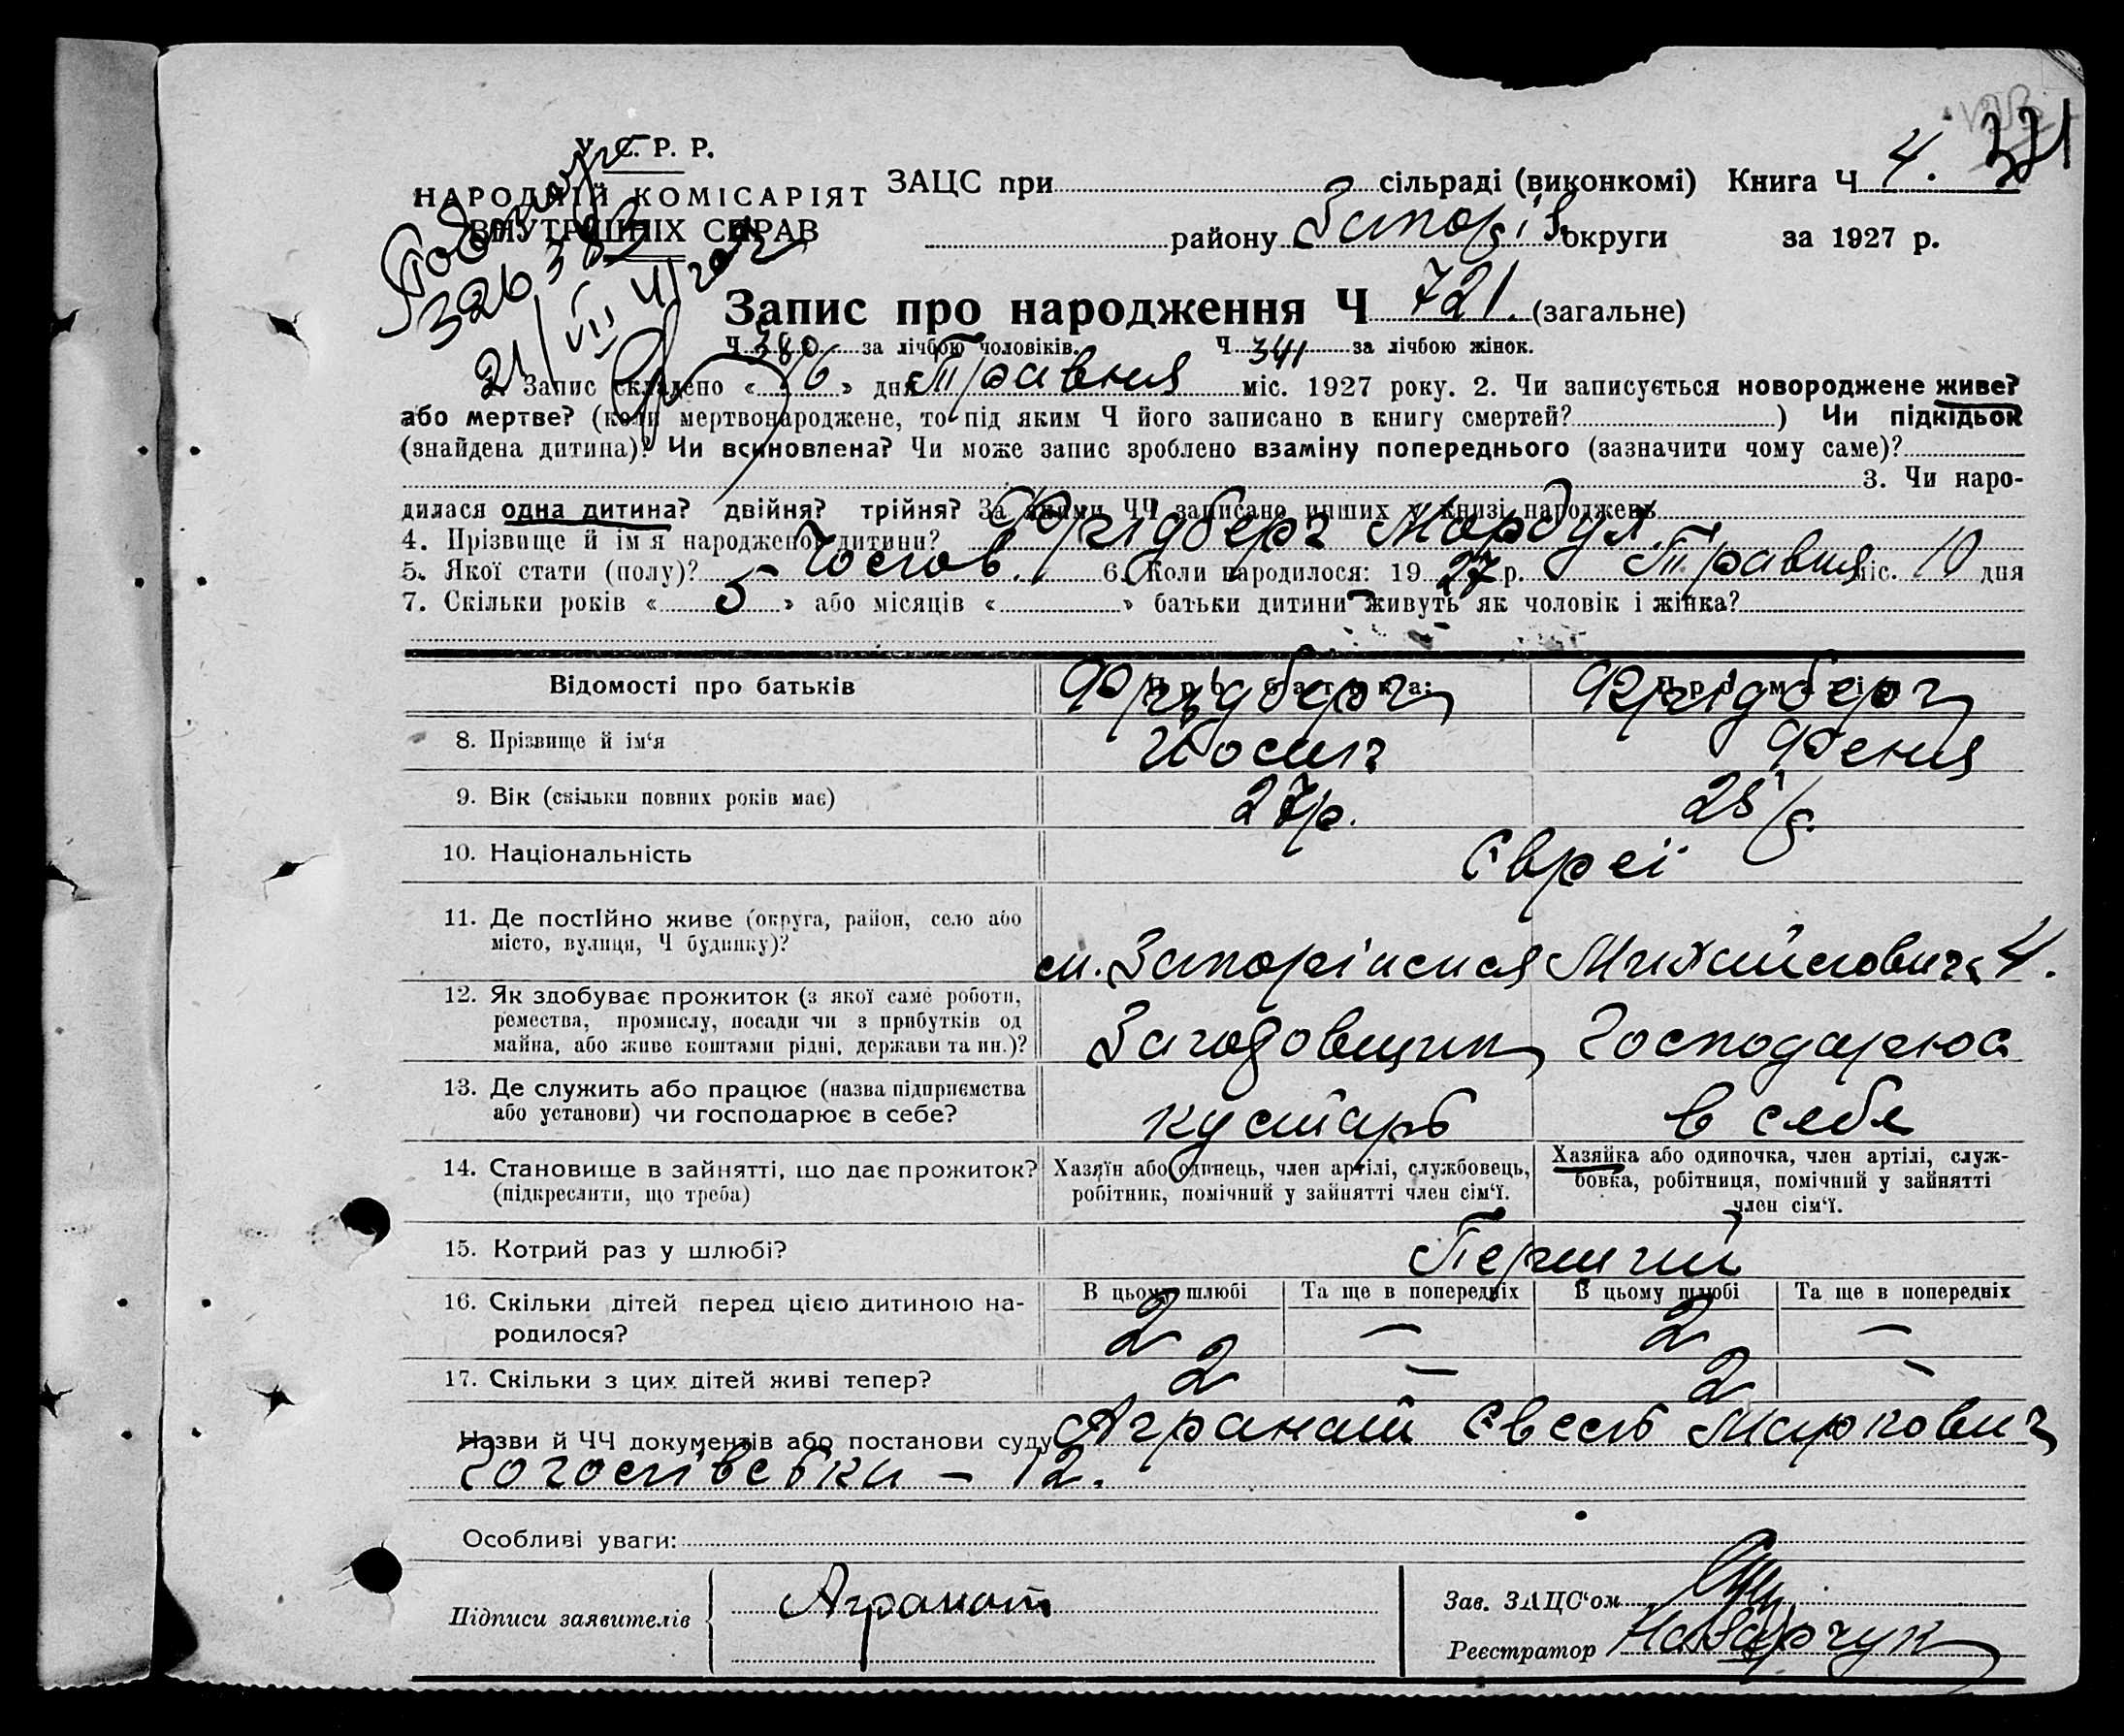 321
У. С. Р. Р.
НАРОДНІЙ КОМІСАРІЯТ
ВНУТРІШНІХ СПРАВ
326383
21/VII
ЗАЦС при сільраді (виконкомі) Книга Ч 4.
району Запоріз. округи за 1927 р.
Запис про народження Ч 721. (загальне)
Ч 380 за лічбою чоловіків. Ч 341 за лічбою жінок.
1. Запис складено «16» дня Травня міс. 1927 року. 2. Чи записується новороджене живе?
або мертве? (коли мертвонароджене, то під яким Ч його записано в книгу смертей? ) Чи підкідьок
(знайдена дитина)? Чи всиновлена? Чи може запис зроблено взаміну попереднього (зазначити чому саме)?
3. Чи наро-
дилася одна дитина? двійня? трійня? За якими ЧЧ записано инших у книзі народжень
4. Прізвище й ім'я народженої дитини? Фрідберг
5. Якої стати (полу)? Чолов. 6. Коли народилося: 1927 р. Травня міс. 10 дня
7. Скільки років «5» або місяців « » батьки дитини живуть як чоловік і жінка?
Відомості про батьків Про батька: Про матір:
8. Прізвище й ім'я Фрідберг Йосип Фрідберг Феня
9. Вік (скільки повних років має) 27 р. 25 р.
10. Національність Євреї
11. Де постійно живе (округа, район, село або
місто, вулиця, Ч будинку)? м. Запоріжжя 4.
12. Як здобуває прожиток (з якої саме роботи,
ремества, промислу, посади чи з прибутків од
майна, або живе коштами рідні, держави та ин.)? Господарює
13. Де служить або працює (назва підприємства
або установи) чи господарює в себе? кустарь в себе
14. Становище в зайнятті, що дає прожиток?
(підкреслити, що треба)
Хазяїн або одинець, член артілі, службовець,
робітник, помічний у зайнятті член сім'ї.
Хазяйка або одиночка, член артілі, служ-
бовка, робітниця, помічний у зайнятті
член сім'ї.
15. Котрий раз у шлюбі? Перший
В цьому шлюбі Та ще в попередніх В цьому шлюбі Та ще в попередніх
16. Скільки дітей перед цією дитиною на-
родилося? 2 — 2 —
17. Скільки з цих дітей живі тепер? 2 — 2 —
Назви й ЧЧ документів або постанови суду Агранат Маркович
12.
Особливі уваги:
Підписи заявителів Агранат
Зав. ЗАЦС'ом
Реєстратор